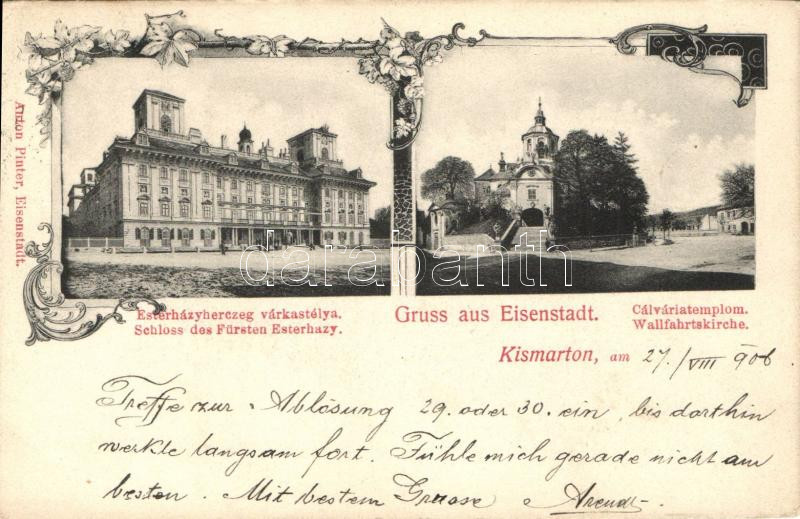 Anton Pinter, Eisenstadt.
Esterházyherczeg várkastélya.
Schloss des Fürsten Esterhazy.
Gruss aus Eisenstadt.
Cálváriatemplom.
Wallfahrtskirche.
Kismarton, am 27./VIII 906
Treffe zur Ablösung 29. oder 30. ein, bis dorthin
werkle langsam fort. Fühle mich gerade nicht am
besten. Mit bestem Grusse Arendt
darabanth.com